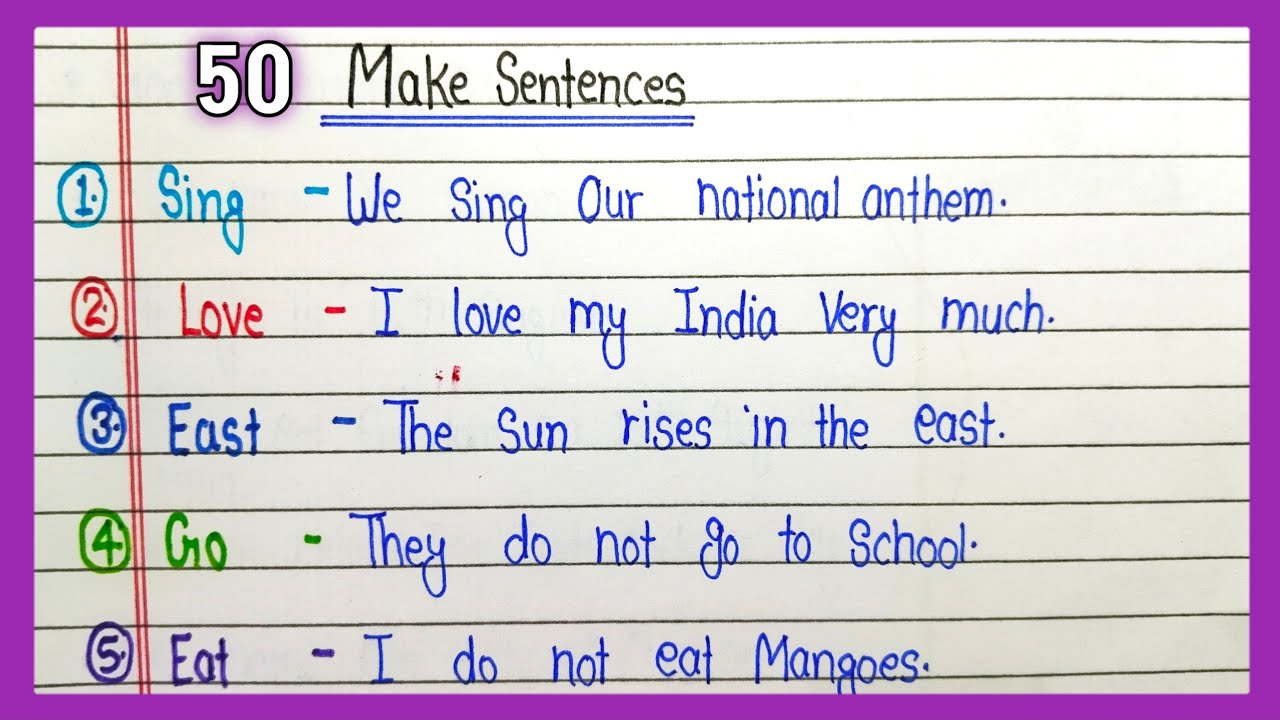 50 Make Sentences
1. Sing - We Sing Our national anthem.
2. Love - I love my India Very much.
3. East - The Sun rises in the east.
4. Go - They do not go to School.
5. Eat - I do not eat Mangoes.